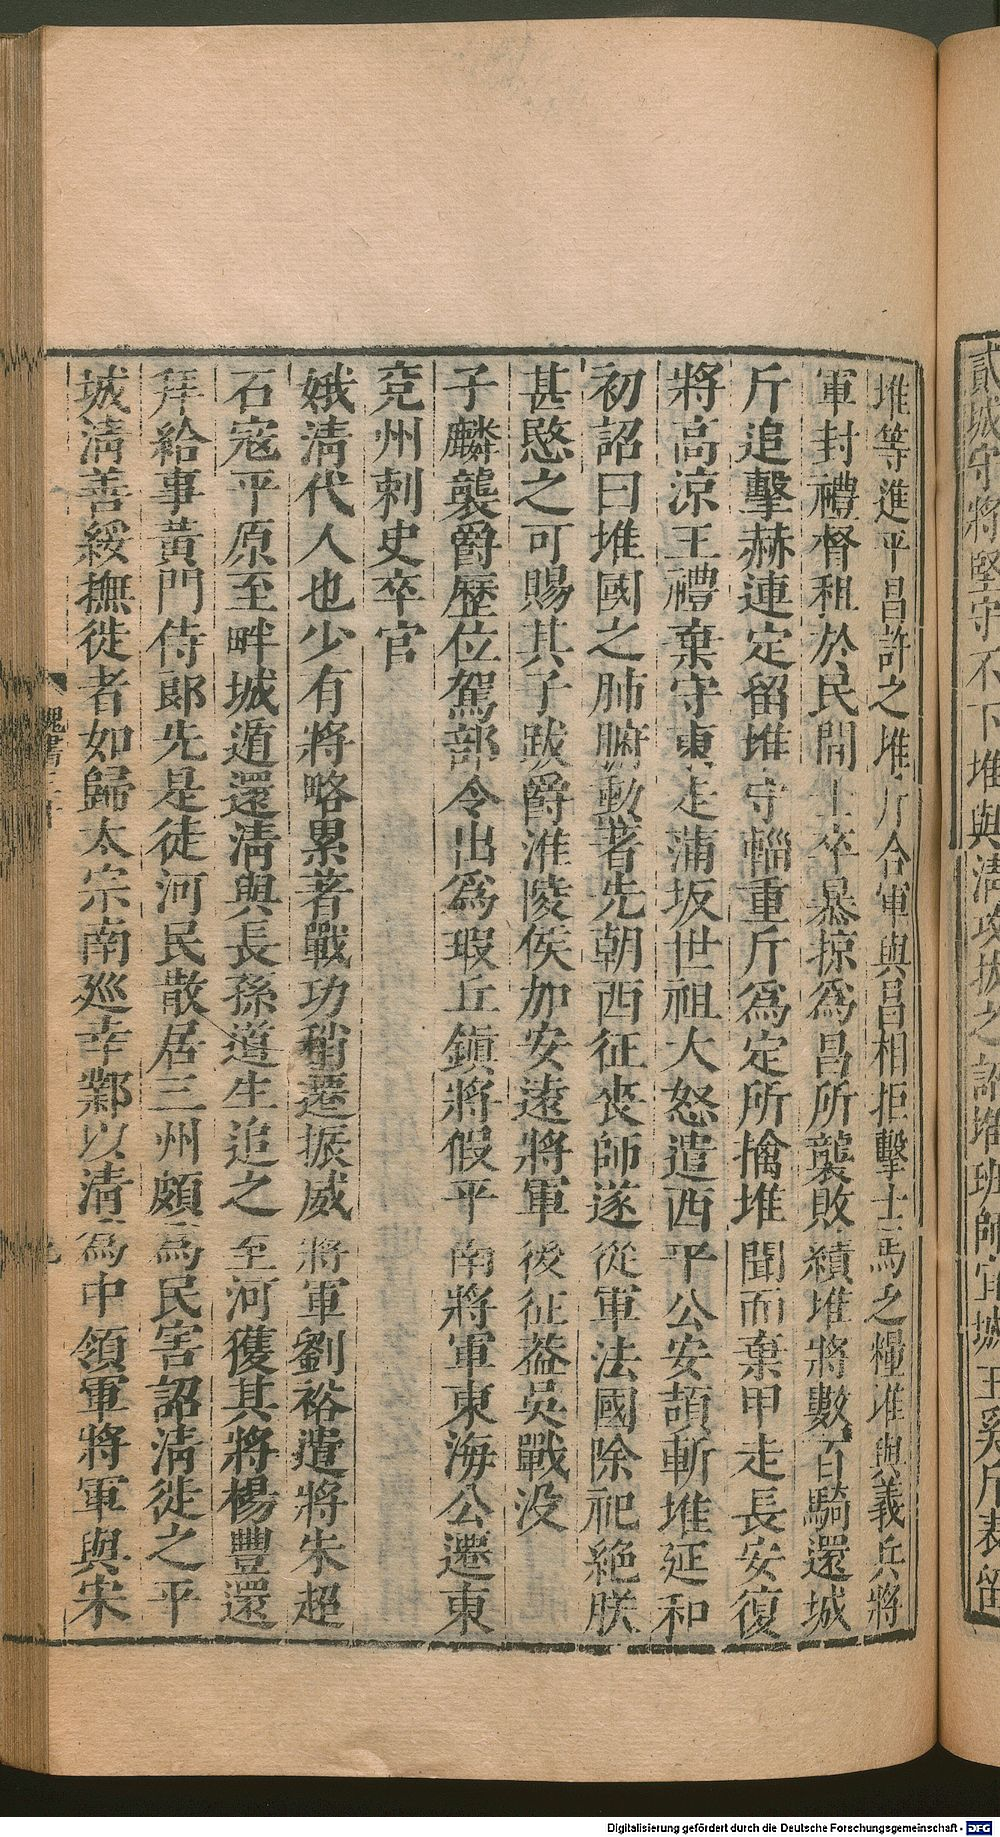 貳城守將堅守不下堆與清攻拔之詔堆班師宜城王奚斤表留
堆等進平昌許之堆斤合軍與昌相拒擊士馬之糧堆與義兵將
軍封禮督租於民間士卒暴掠爲昌所襲敗績堆將數百騎還城
斤追擊赫連定留堆守輜重斤爲定所擒堆聞而棄甲走長安復
將高涼王禮棄守東走蒲坂世祖大怒遣西平公安頡斬堆延和
初詔曰堆國之肺腑勳著先朝西征喪師遂從軍法國除祀絶朕
甚愍之可賜其子跋爵淮陵侯加安遠將軍後征葢吳戰没
子麟襲爵歷位駕部令出爲瑕丘鎮將假平南將軍東海公遷東
兖州刺史卒官
娥清代人也少有將略累著戰功稍遷振威將軍劉裕遣將朱超
石寇平原至畔城遁還清與長孫道生追之至河獲其將楊豐還
拜給事黃門侍郎先是徒河民散居三州頗爲民害詔清徙之平
城清善綏撫徙者如歸太宗南巡幸鄴以清爲中領軍將軍與宋
魏書三十
九
Digitalisierung gefördert durch die Deutsche Forschungsgemeinschaft - DFG